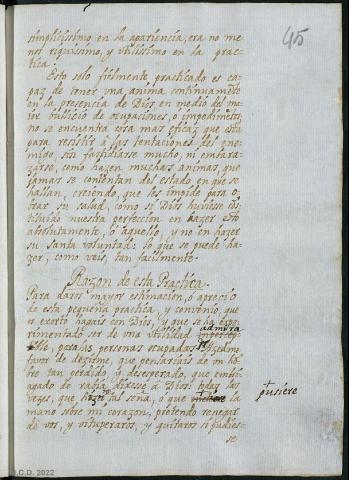 45
simplicissimo en la apariencia, era no me
nos riquissimo, y utilissimo en la prac
tica.
Esto solo fielmente practicado es ca
paz de tener una anima continuamẽte
en la presencia de Dios en medio del ma
ior bullicio de ocupaciones, o impedimẽtos
no se encuentra cosa mas eficaz que esta
para resistir à las tentaciones del ene
migo, sin fastidiarse mucho, ni embara
zarse, como hazen muchas animas, que
jamas se contentan del estado en que se
hallan, creiendo, que les impide para o
brar su salud, como si Dios huviesse cõs
tituido nuestra perfeccion en hazer esto
absolutamente, ò aquello, y no en hazer
su santa voluntad: lo que se puede ha
zer, como veis, tan facilmente.
Razon de esta Practica.
Para daros mayor estimacion, o aprecio
de esta pequeña practica, y convenio, que
os exorto hagais con Dios, y que se ha expe
rimentado ser de una utilidad admira
ble, para las personas ocupadas: Hazedme
favor de dezirme, que pensariais de un hõ
bre tan perdido, y desesperado, que embri
agado de rabia dixesse à Dios: todas las
vezes, que haga tal seña, ò que
† pusiere
la
mano sobre mi corazon, pretendo renegar
de vos, y vituperaros, y quitaros si pudies-
se
I.C.D. 2022